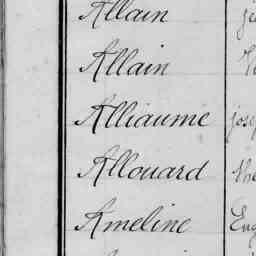 Allain
Allain
Alliaume
Allouard
Ameline